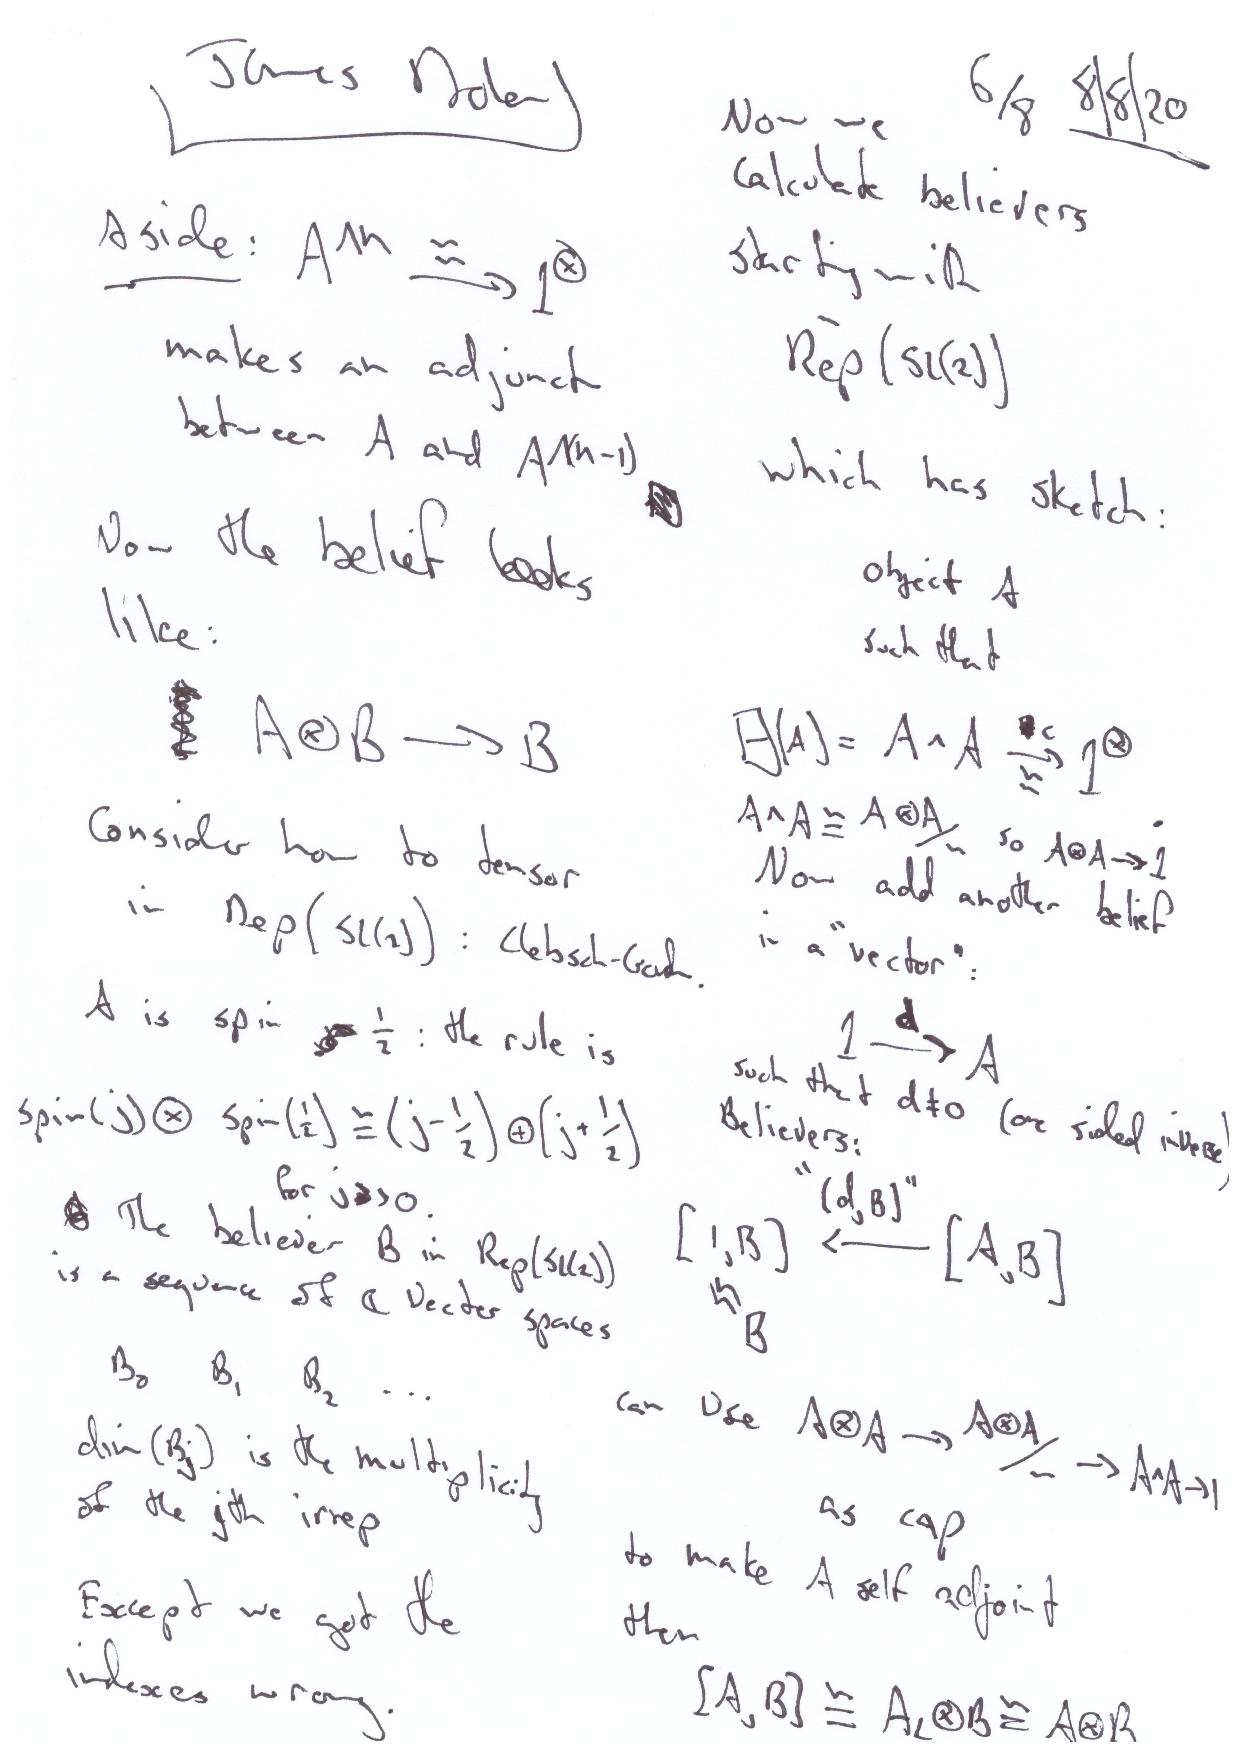 James Dolan
6/8 8/8/20
Aside: A^∧n ≅→ 1^⊗
makes an adjunct
between A and A^∧(n-1)
Now the belief looks
like:
A⊗B → B
Consider how to tensor
in Rep(SL(2)): Clebsch-Gord.
A is spin 1/2: the rule is
spin(j)⊗ spin(1/2) ≅ (j-1/2)⊕(j+1/2)
for j>>0.
The believer B in Rep(SL(2))
is a sequence of ℂ vector spaces
B₀ B₁ B₂ ...
dim(Bj) is the multiplicity
of the jth irrep
Except we got the
indexes wrong.
Now we
calculate believers
starting with
Rep(SL(2))
which has sketch:
object A
such that
(A) = A∧A c→≅ 1^⊗
A∧A ≅ A⊗A/~ so A⊗A→1
Now add another belief
in a "vector":
1 d→ A
such that d≠0 (one sided inverse)
Believers:
"(d,B)"
[1,B] ← [A,B]
≅
B
can use A⊗A → A⊗A/~ → A∧A→1
as cap
to make A self adjoint
then
[A,B] ≅ A_L⊗B ≅ A⊗B